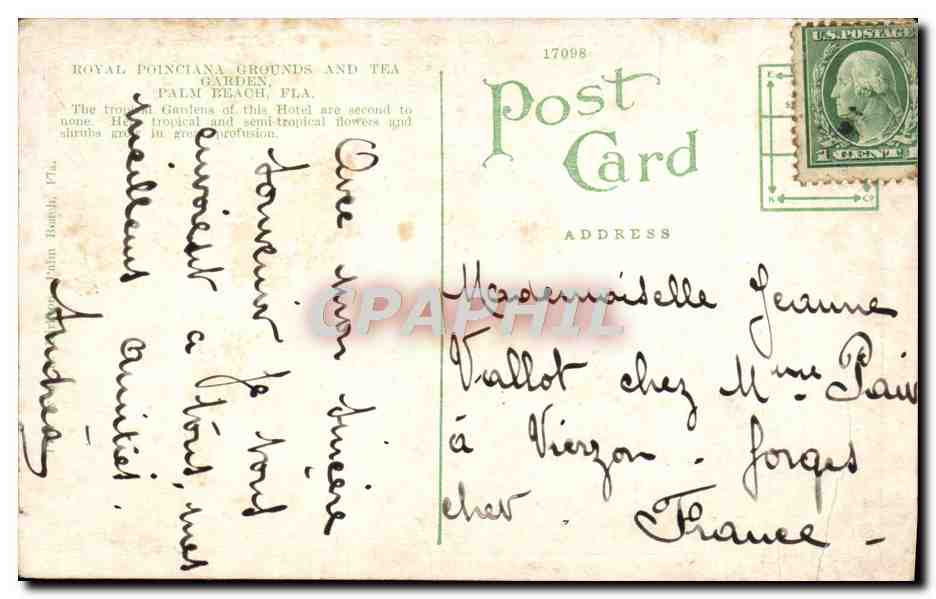 ROYAL POINCIANA GROUNDS AND TEA
GARDEN,
PALM BEACH, FLA.
The tropical Gardens of this Hotel are second to
none. Here tropical and semi-tropical flowers and
shrubs grow in great profusion.
Palm Beach, Fla.
Avec mon sincère
souvenir je vous
envoient a tous, mes
meilleurs amitiés.
Andréa
17098
Post
Card
ADDRESS
U.S. POSTAGE
1 CENT 1
Mademoiselle Jeanne
Vallot chez Mme
à Vierzon - forges
cher
France -
CPAPHIL